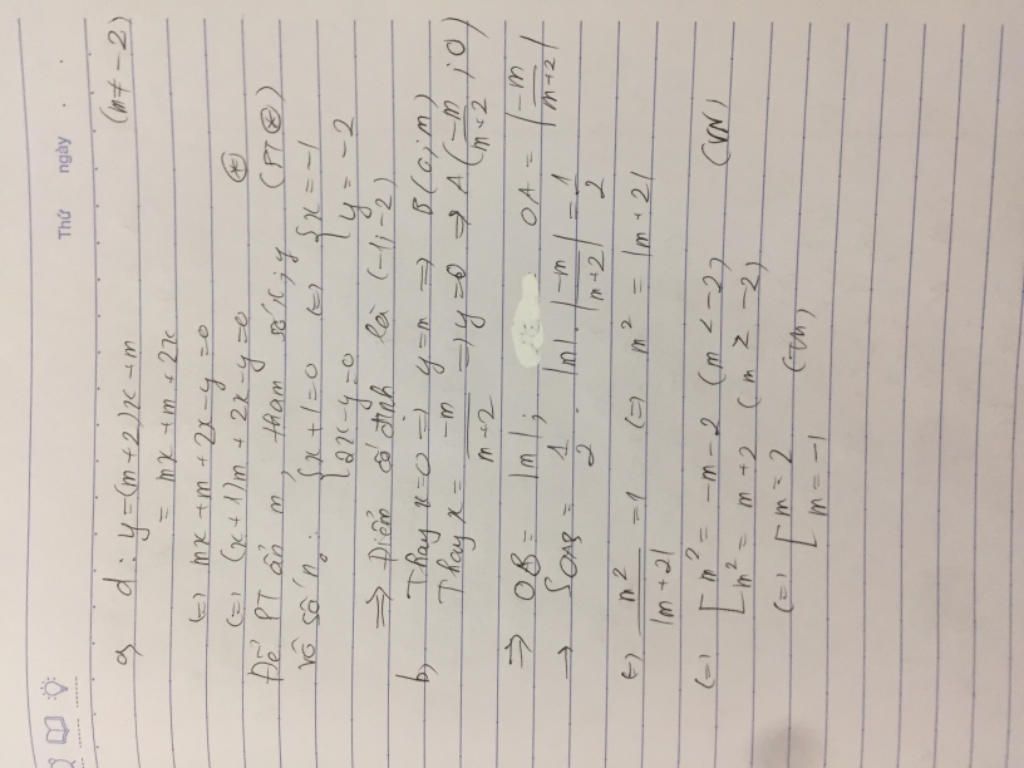 Thứ ngày
a, d : y = (m+2)x + m (m ≠ -2)
= mx + m + 2x
(=) mx + m + 2x - y = 0
(=) (x+1)m + 2x - y = 0 (*)
Để PT ẩn m, tham số x; y (PT (*))
Vô số n0 : { x + 1 = 0 (=) { x = -1
{ 2x - y = 0 { y = -2
=> Điểm cố định là (-1; -2)
b, Thay x = 0 => y = m => B(0; m)
Thay x = -m/m+2 => y = 0 => A(-m/m+2 ; 0)
=> OB = |m| ; OA = |-m|/|m+2|
→ SOAB = 1/2 . |m| . |-m|/|m+2| = 1/2
(=) m²/|m+2| = 1 (=) m² = |m+2|
(=) [ m² = -m - 2 (m < -2) (VN)
[ m² = m + 2 (m ≥ -2)
(=) [ m = 2 (TM)
[ m = -1